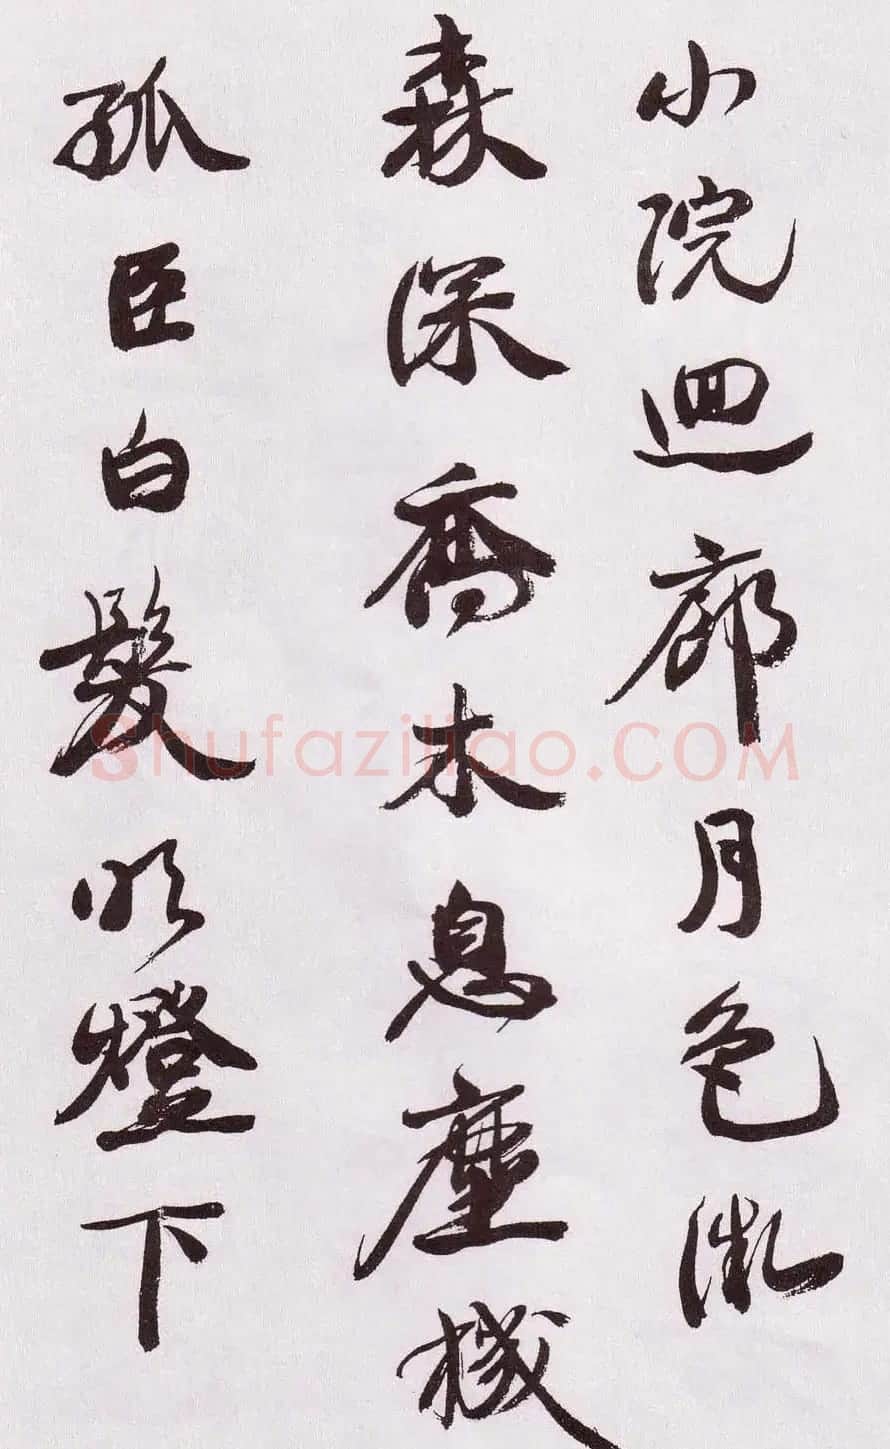 小院迴廊月色微
森深喬木息塵機
孤臣白髮明燈下
Shufaziliao.COM